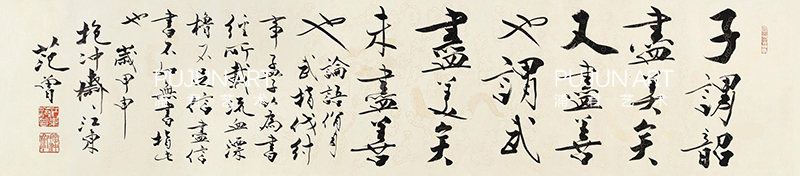 子謂韶
盡美矣
又盡善
也謂武
盡美矣
未盡善
也
論語
武指伐紂
事孟子以為書
經所載流血漂
櫓不足信盡信
書不如無書指此
也
歲甲申
抱冲齋江東
范曾
PUJUN ART
PUJUN ART